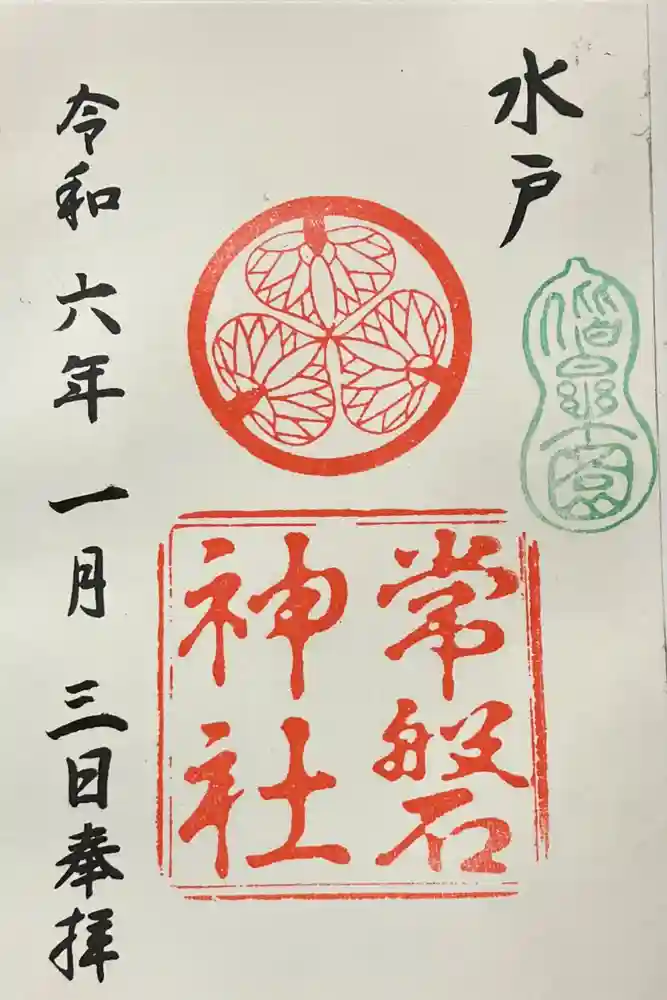 水戸
常磐
神社
令和六年一月三日奉拝